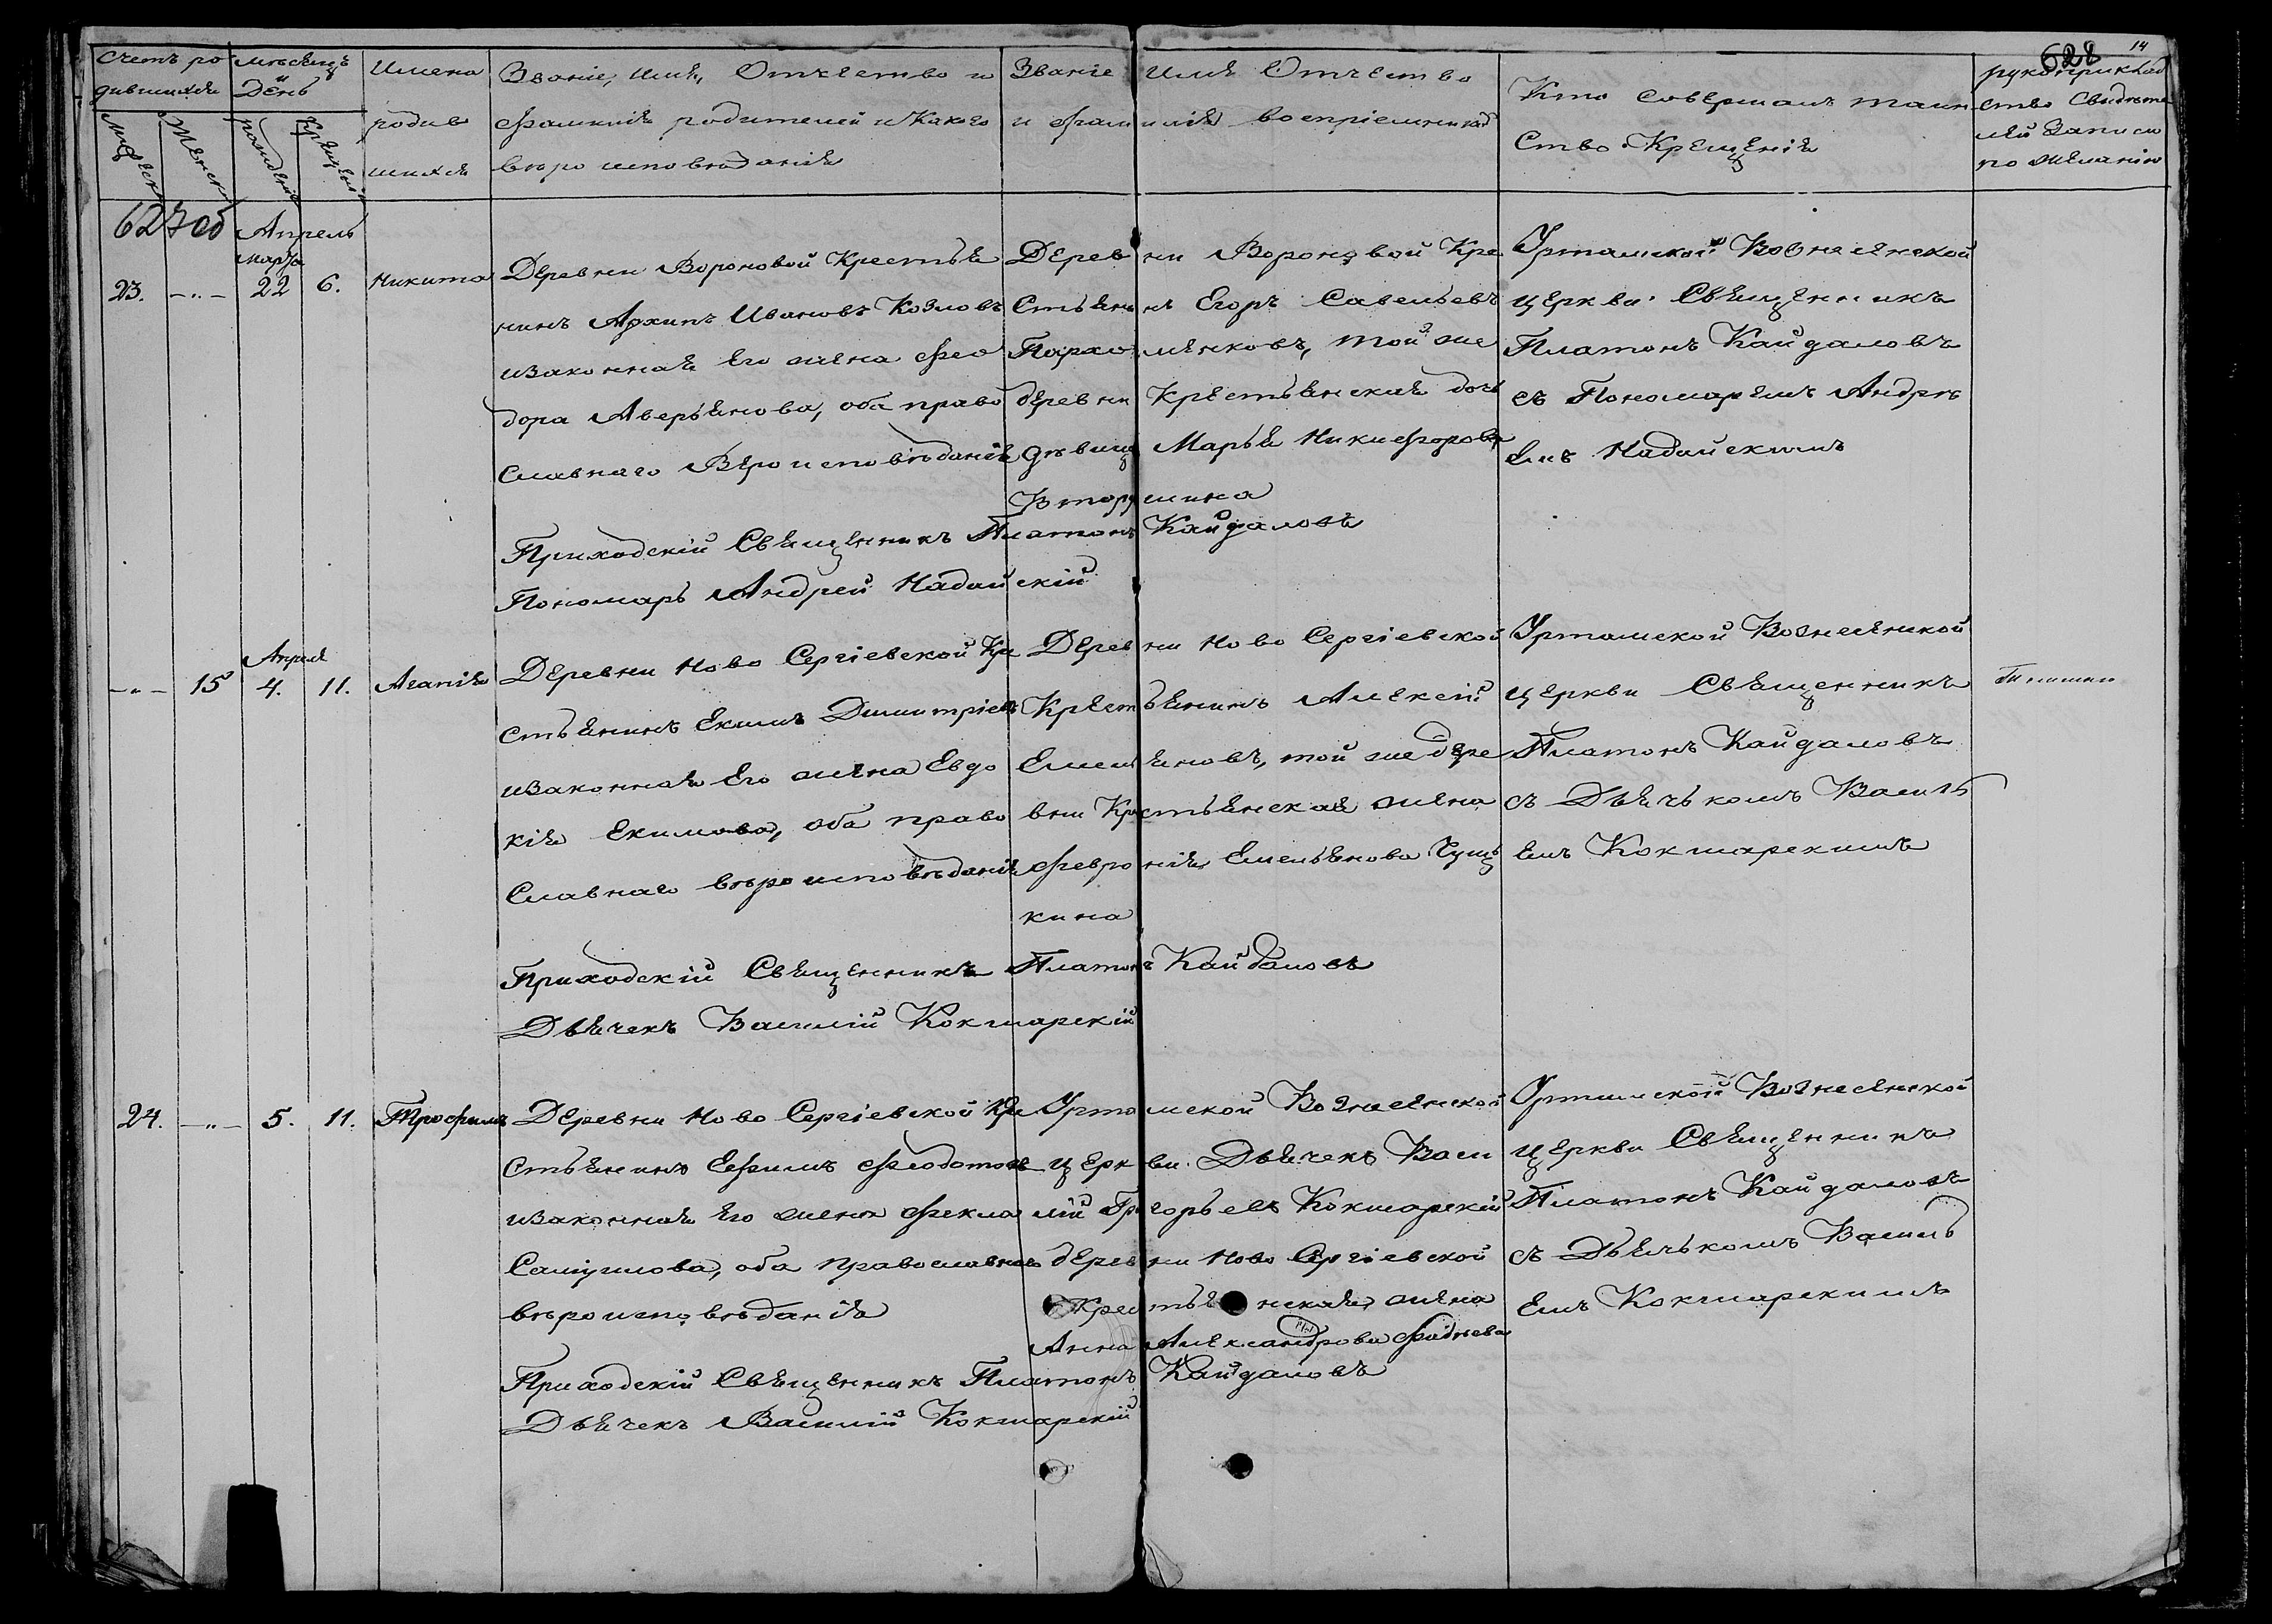 628 14
Счетъ ро
дившихся
Мужеск
Женск
Мѣсяцъ
и
День
рожденія
Крещенія
Имена
родив
шихся
Званіе, имя, Отчество и
фамилія родителей и Какого
вѣроисповѣданія
Званіе имя Отчество
и фамилія воспріемников
Кто совершалъ таин
ство Крещенія
рукоприклад
ство Свидѣте
лей Записи
по желанію
627 об
Апрель
марта
23. -"- 22 6. Никита
Деревни Вороновой Крестья
нинъ Архипъ Ивановъ Козловъ
изаконная Его жена Фео
дора Аверьянова, оба право
славнаго Вероисповѣданія
Деревни Вороновой Кре
стьянинъ Егоръ Савельевъ
Пархоменковъ, той же
деревни Крестьянская дочь
дѣвица Марья Никифорова
Вторушина
Уртамской Вознесенской
церкви Священникъ
Платонъ Кайдаловъ
съ Пономаремъ Андрѣ
емъ Надайскимъ
Приходскій Священникъ Платонъ Кайдаловъ
Пономарь Андрей Надайскій
Апреля
-"- 15 4. 11. Агапія
Деревни Ново Сергіевской Кре
стьянинъ Екимъ Димитріевъ
изаконная Его жена Евдо
кія Екимова, оба право
славнаго вѣроисповѣданія
Деревни Ново Сергіевской
Крестьянинъ Алексій
Емельяновъ, той же дере
вни Крестьянская жена
Февронія Емельянова
кина
Уртамской Вознесенской
церкви Священникъ
Платонъ Кайдаловъ
съ Дьячькомъ Василь
емъ Кокшарскимъ
Приходскій Священникъ Платонъ Кайдаловъ
Дьячекъ Василій Кокшарскій
24. -"- 5. 11. Трофимъ
Деревни Ново Сергіевской Кре
стьянинъ Ефимъ Феодотовъ
изаконная Его жена Фекла
Самуилова, оба православнаго
вѣроисповѣданія
Уртамской Вознесенской
церкви Дьячекъ Васи
лій Григорьевъ Кокшарскій
деревни Ново Сергіевской
Крестьянская жена
Анна Александрова Фадѣева
Уртамской Вознесенской
церкви Священникъ
Платонъ Кайдаловъ
съ Дьячькомъ Василь
емъ Кокшарскимъ
Приходскій Священникъ Платонъ Кайдаловъ
Дьячекъ Василій Кокшарскій